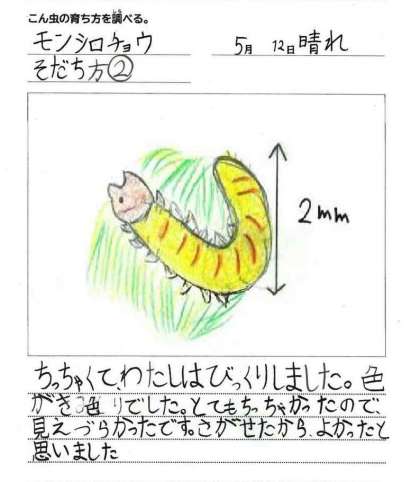 こん虫の育ち方を調べる。
モンシロチョウ 5月 12日 晴れ
そだち方②
2mm
ちっちゃくて、わたしはびっくりしました。色
がき色でした。とてもちっちゃかったので、
見えづらかったです。さがせたから、よかったと
思いました